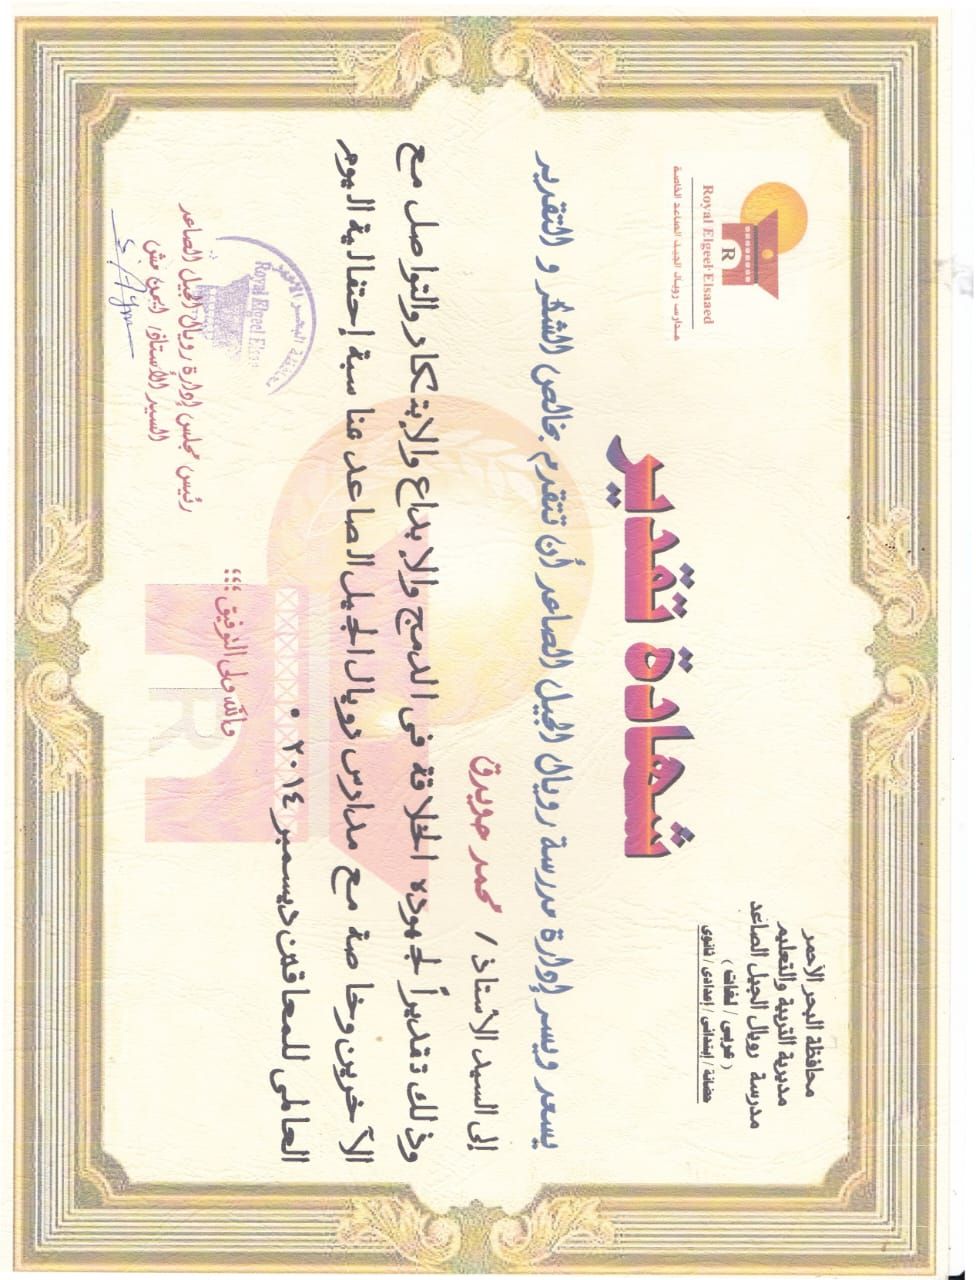 محافظة البحر الأحمر
مديرية التربية والتعليم
مدرسة رويال الجيل الصاعد
( عربى / لغات )
حضانة / إبتدائى / إعدادى / ثانوى
R
Royal Elgeel Elsaaed
مدارس رويال الجيل الصاعد الخاصة
شهادة تقدير
يسعد ويسر إدارة مدرسة رويال الجيل الصاعد أن تتقدم بخالص الشكر و التقدير
إلى السيد الأستاذ / محمد صديق
وذلك تقديراً لجهوده الخلاقة فى الدمج والإبداع والإبتكار والتواصل مع
الآخرين وخاصة مع مدارس رويال الجيل الصاعد بمناسبة إحتفالية اليوم
العالمى للمعاقين ديسمبر ٢٠١٤ .
والله ولى التوفيق ،،،
رئيس مجلس إدارة رويال الجيل الصاعد
السيد الأستاذ/ أيمن
R
محافظة البحر الأحمر
Royal Elgeel